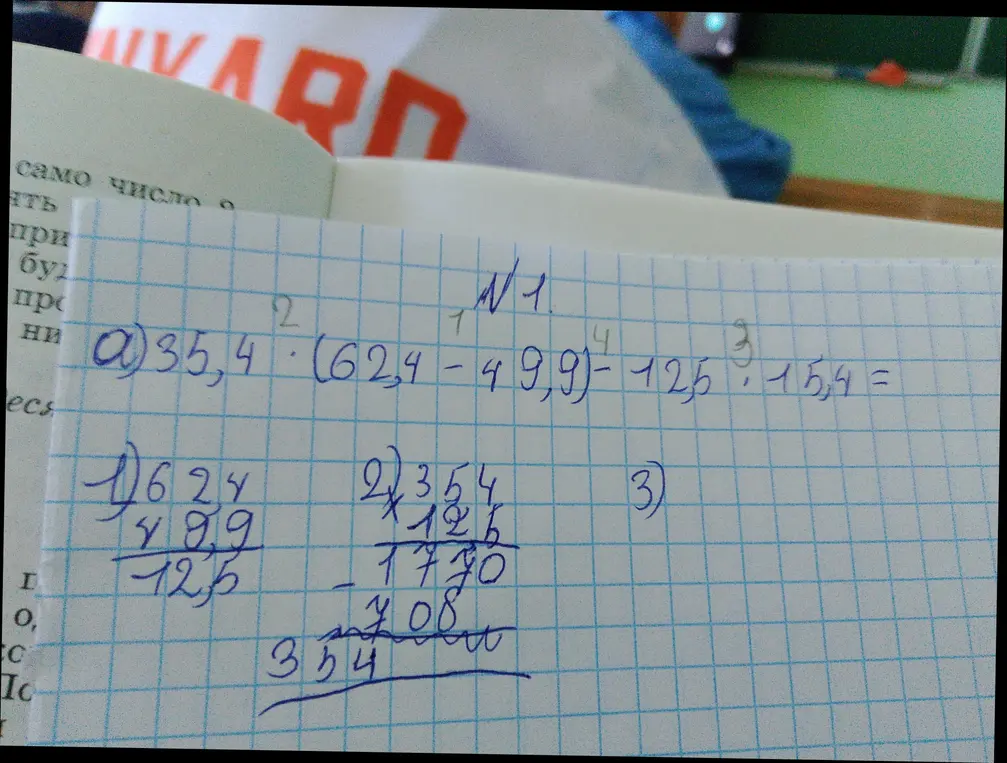 NYARD
само число
ять
при
буд
про
ни
еся
N 1.
2 1 4 3
а) 35,4 · (62,4 - 49,9) - 12,5 · 15,4 =
1) 624
49,9
12,5
2) 354
× 125
1770
- 708
354
3)
о,